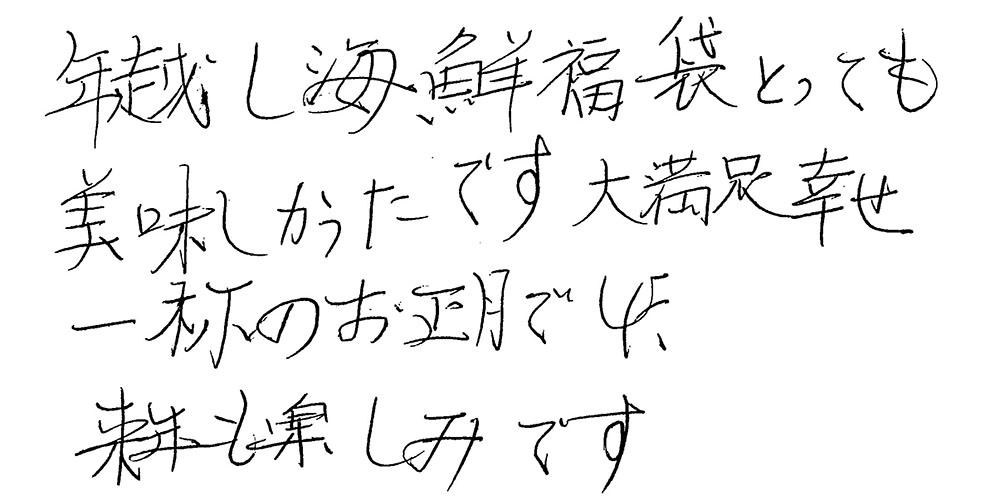 年越し海鮮福袋とっても
美味しかったです大満足幸せ
一杯のお正月でした
来年も楽しみです